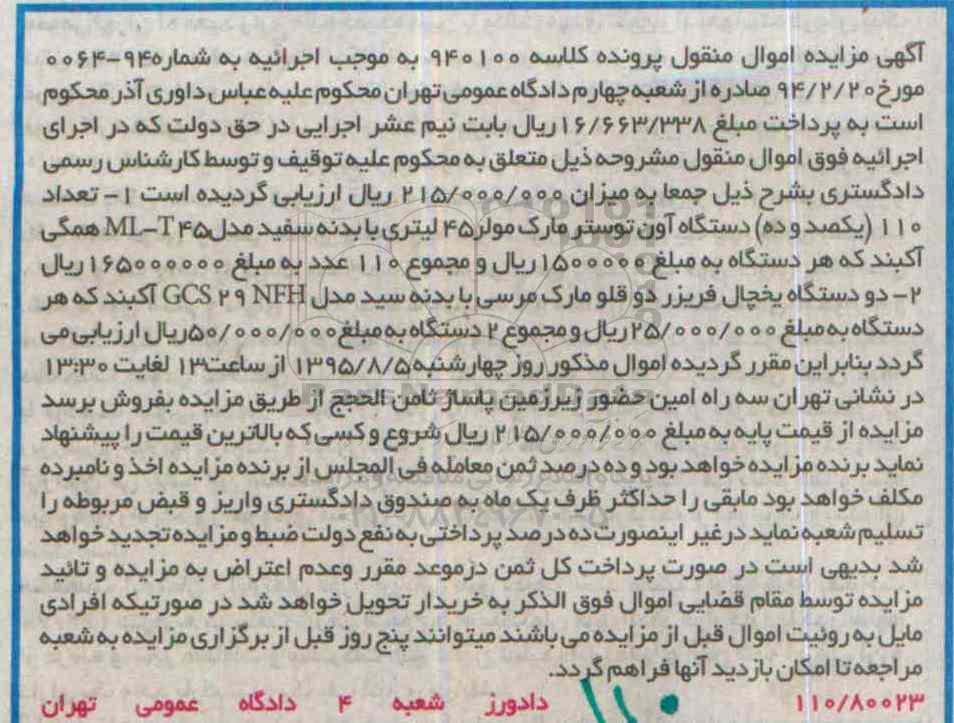 آگهی مزایده اموال منقول پرونده کلاسه ۹۴۰۱۰۰ به موجب اجرائیه به شماره۹۴-۰۰۶۴
مورخ۹۴/۲/۲۰ صادره از شعبه چهارم دادگاه عمومی تهران محکوم علیه عباس داوری آذر محکوم
است به پرداخت مبلغ ۱۶/۶۶۳/۳۳۸ریال بابت نیم عشر اجرایی در حق دولت که در اجرای
اجرائیه فوق اموال منقول مشروحه ذیل متعلق به محکوم علیه توقیف و توسط کارشناس رسمی
دادگستری بشرح ذیل جمعا به میزان ۲۱۵/۰۰۰/۰۰۰ ریال ارزیابی گردیده است ۱- تعداد
۱۱۰ (یکصد و ده) دستگاه آون توستر مارک مولر۴۵ لیتری با بدنه سفید مدل۴۵ML-T همگی
آکبند که هر دستگاه به مبلغ ۱۵۰۰۰۰۰ریال و مجموع ۱۱۰ عدد به مبلغ ۱۶۵۰۰۰۰۰۰ریال
۲- دو دستگاه یخچال فریزر دو قلو مارک مرسی با بدنه سید مدل GCS ۲۹ NFH آکبند که هر
دستگاه به مبلغ ۲۵/۰۰۰/۰۰۰ریال و مجموع ۲ دستگاه به مبلغ۵۰/۰۰۰/۰۰۰ریال ارزیابی می
گردد بنابراین مقرر گردیده اموال مذکور روز چهارشنبه۱۳۹۵/۸/۵ از ساعت۱۳ لغایت ۱۳:۳۰
در نشانی تهران سه راه امین حضور زیرزمین پاساژ ثامن الحجج از طریق مزایده بفروش برسد
مزایده از قیمت پایه به مبلغ ۲۱۵/۰۰۰/۰۰۰ ریال شروع و کسی که بالاترین قیمت را پیشنهاد
نماید برنده مزایده خواهد بود و ده درصد ثمن معامله فی المجلس از برنده مزایده اخذ و نامبرده
مکلف خواهد بود مابقی را حداکثر ظرف یک ماه به صندوق دادگستری واریز و قبض مربوطه را
تسلیم شعبه نماید در غیر اینصورت ده درصد پرداختی به نفع دولت ضبط و مزایده تجدید خواهد
شد بدیهی است در صورت پرداخت کل ثمن درموعد مقرر وعدم اعتراض به مزایده و تائید
مزایده توسط مقام قضایی اموال فوق الذکر به خریدار تحویل خواهد شد در صورتیکه افرادی
مایل به روئیت اموال قبل از مزایده می باشند میتوانند پنج روز قبل از برگزاری مزایده به شعبه
مراجعه تا امکان بازدید آنها فراهم گردد.
۱۱۰/۸۰۰۲۳ دادورز شعبه ۴ دادگاه عمومی تهران
۱۱۰
ParsNamadData